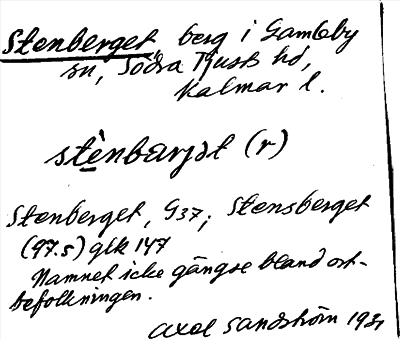 Stenberget berg i Gamleby
sn, Södra Tjusts hd,
Kalmar l.
stènbarjət (r)
Stenberget, G37; Stensberget
(97.5) glk 147
Namnet icke gängse bland ort-
befolkningen.
Axel Sandström 1931